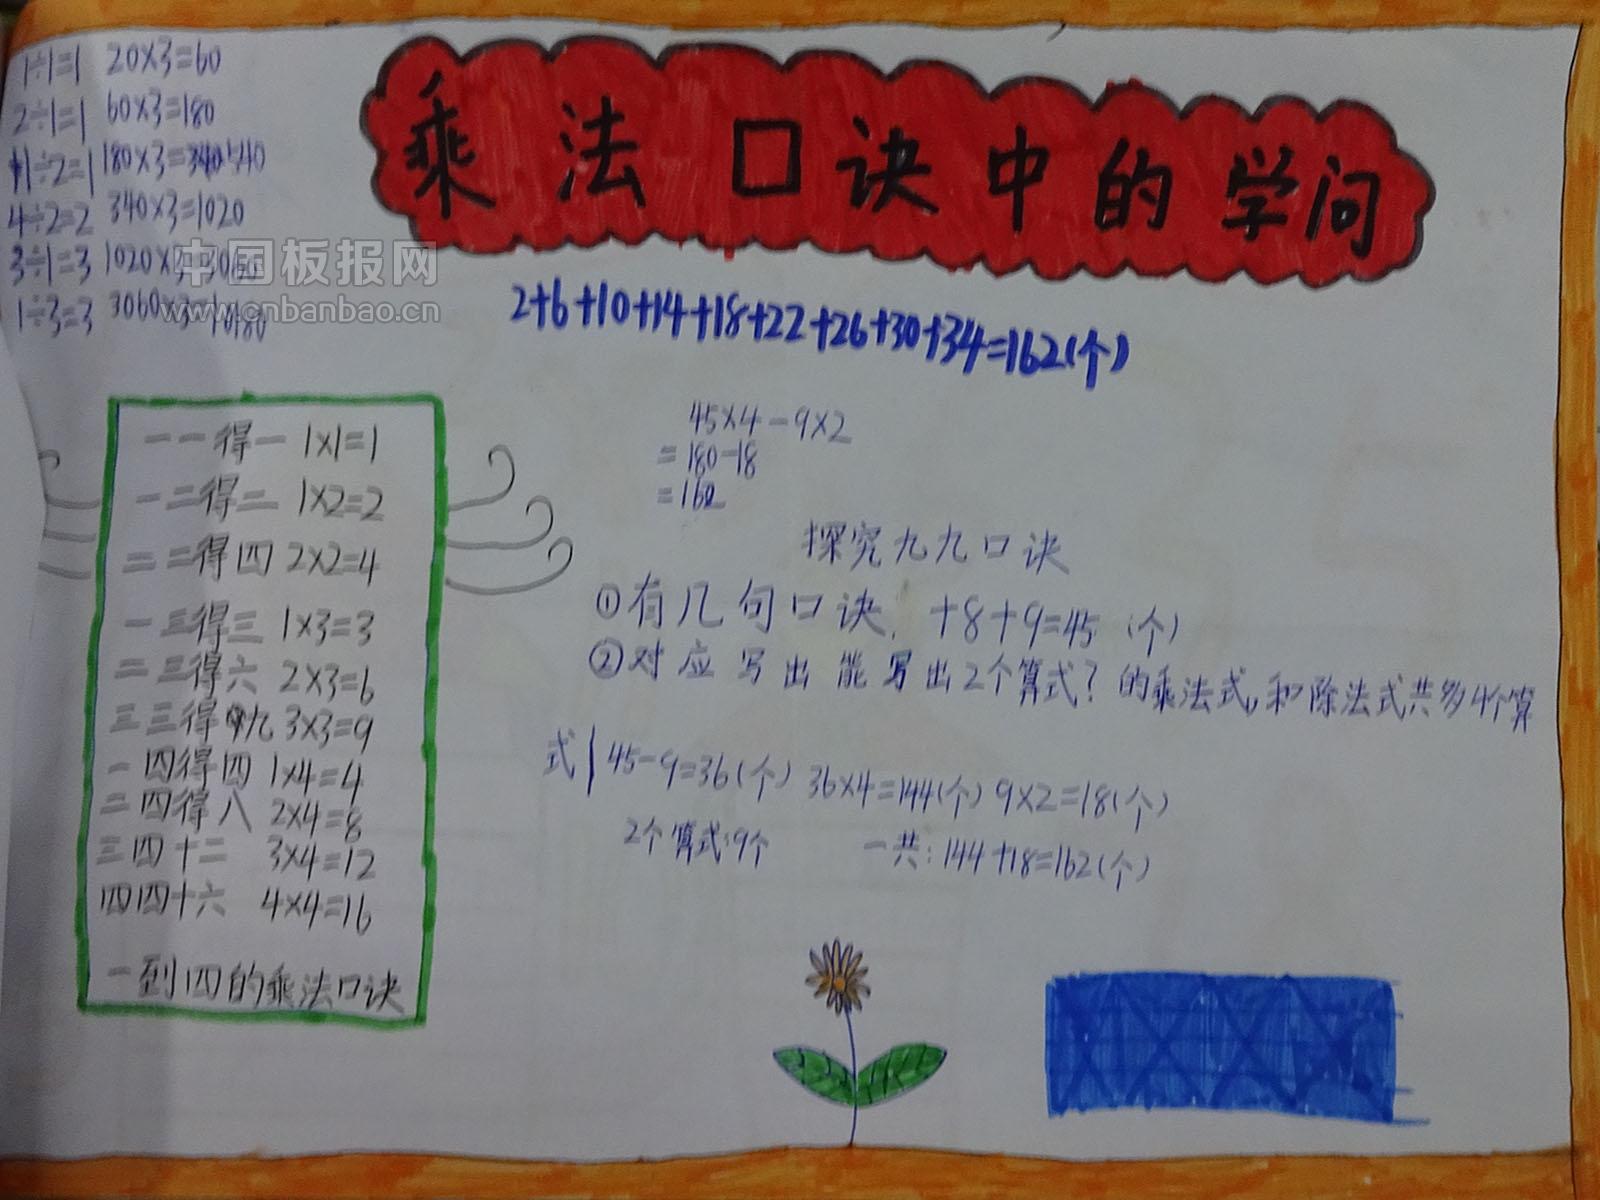 乘法口诀中的学问
1÷1=1 20×3=60
2÷1=1 60×3=180
1÷2=1 180×3=340
4÷2=2 340×3=1020
3÷1=3 1020×3=3060
1÷3=3 3060×3=
中国板报网
www.cnbanbao.cn
2+6+10+14+18+22+26+30+34=162(个)
45×4-9×2
=180-18
=162
一一得一 1×1=1
一二得二 1×2=2
二二得四 2×2=4
一三得三 1×3=3
二三得六 2×3=6
三三得九 3×3=9
一四得四 1×4=4
二四得八 2×4=8
三四十二 3×4=12
四四十六 4×4=16
一到四的乘法口诀
探究九九口诀
①有几句口诀, +8+9=45 (个)
②对应写出能写出2个算式?的乘法式,和除法式共多4个算
式 45-9=36(个) 36×4=144(个) 9×2=18(个)
2个算式:9个 一共:144+18=162(个)